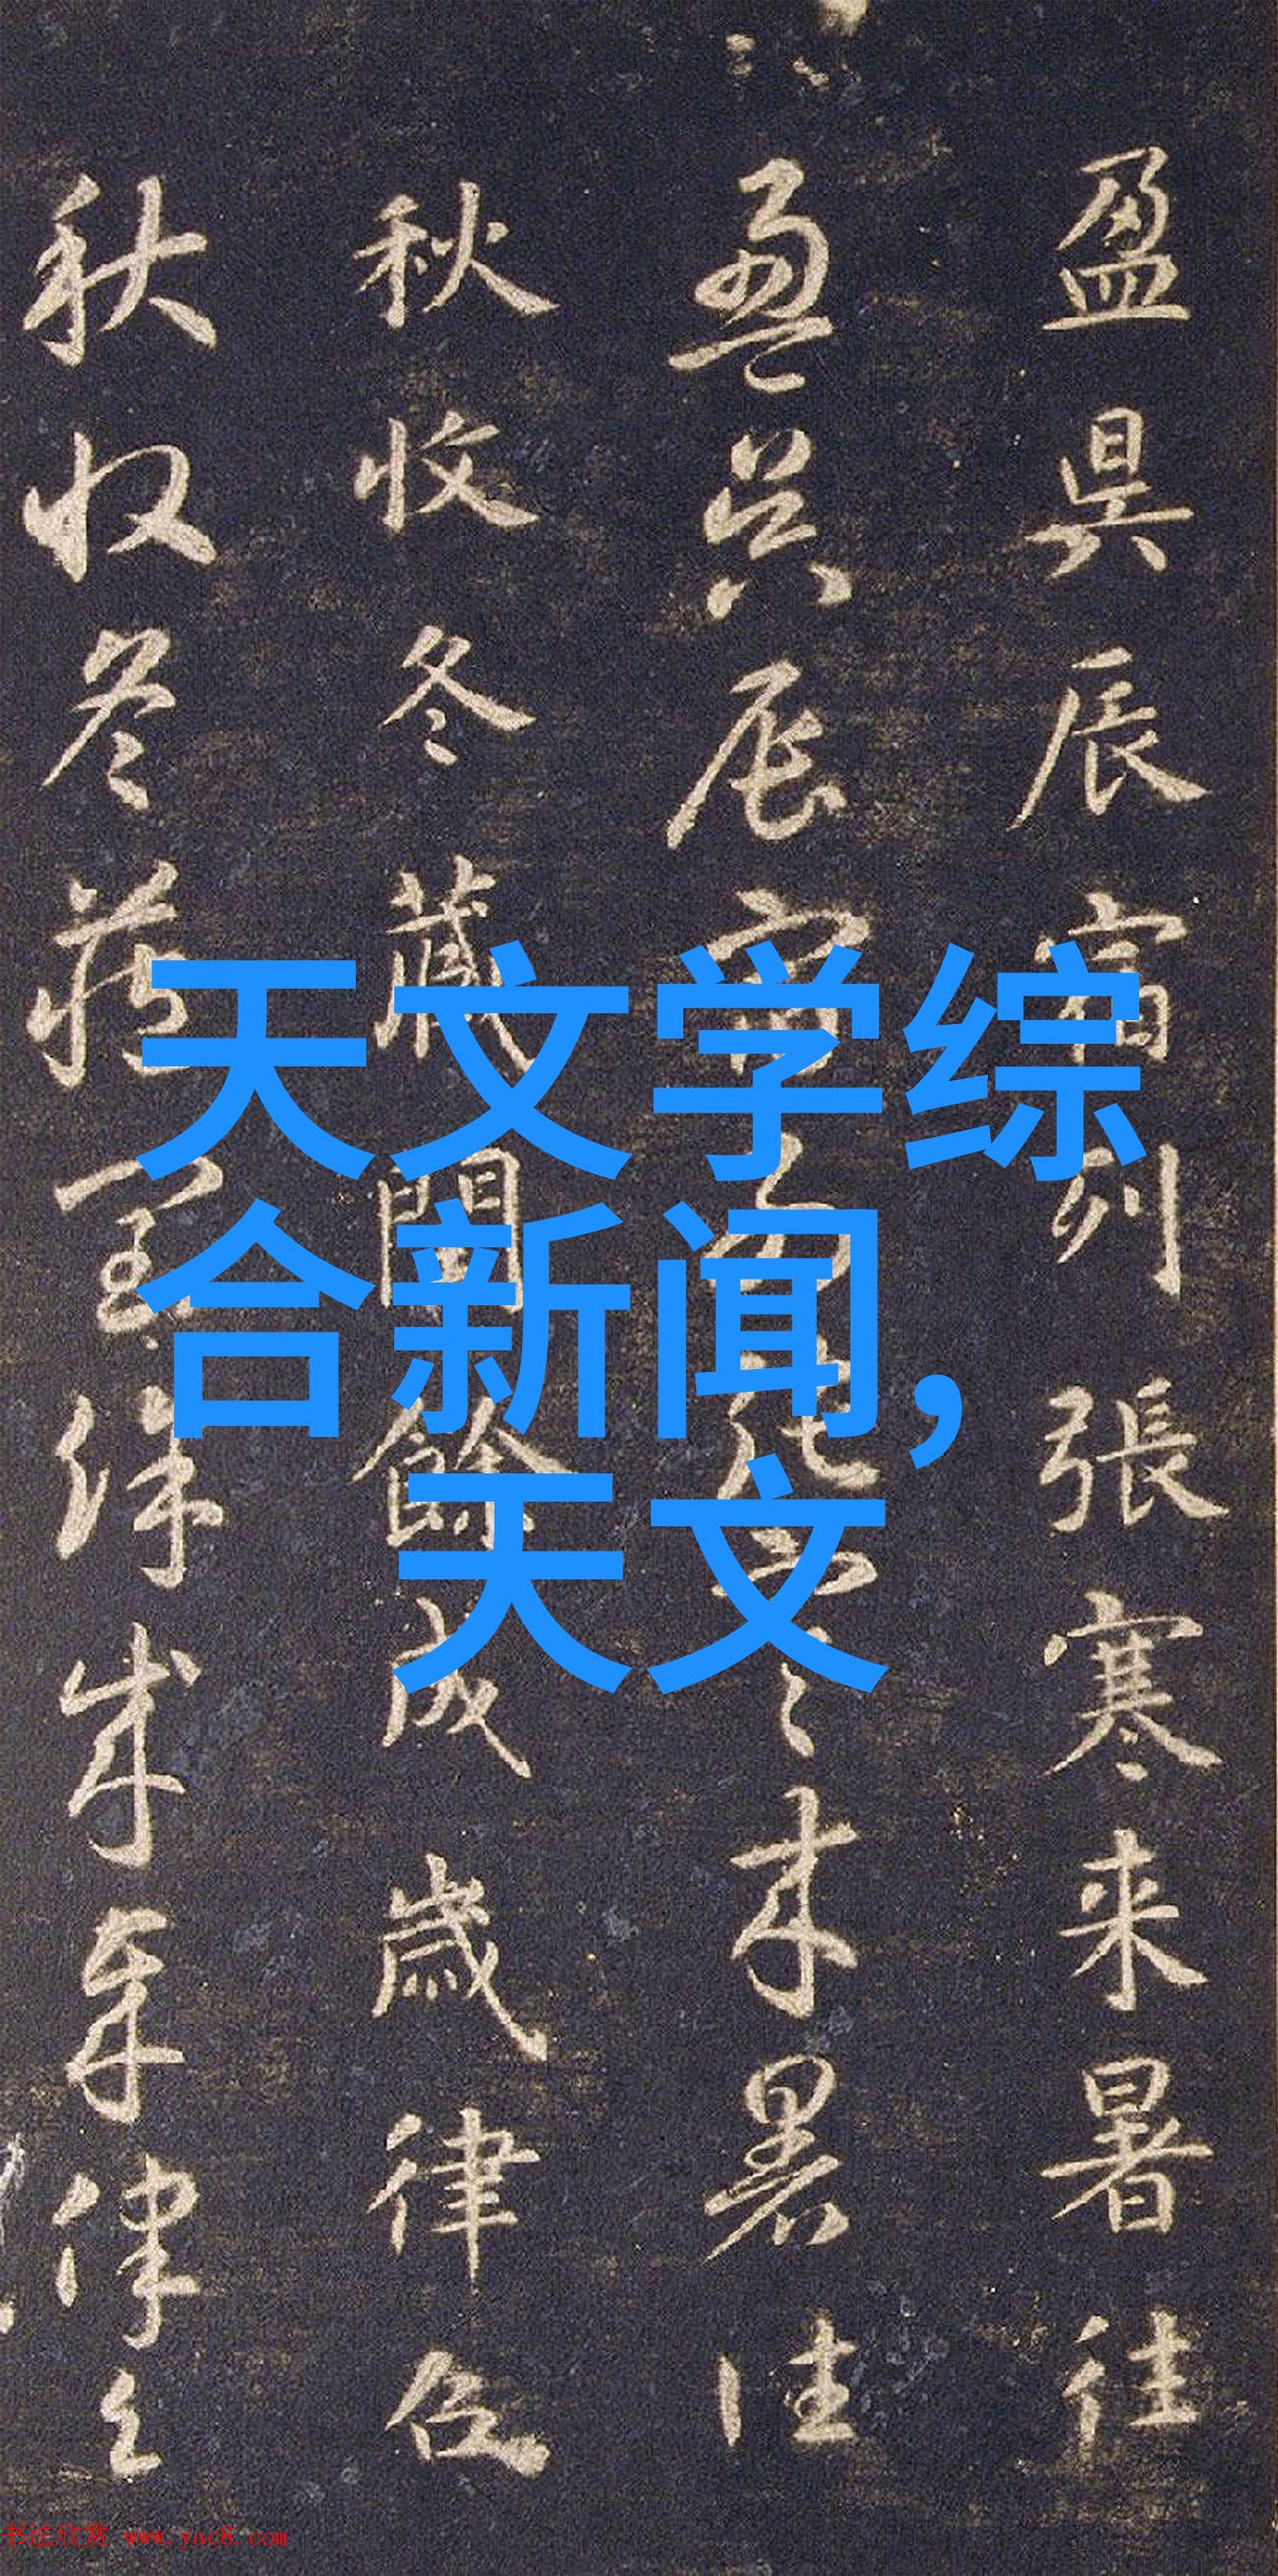 天文学综
合新闻，
天文
盈昃辰宿列張寒来暑往
盈昃辰宿列張寒来暑往
秋收冬藏閏餘成歲律召
秋收冬藏閏餘成歲律召
书法欣赏 www.yac8.com